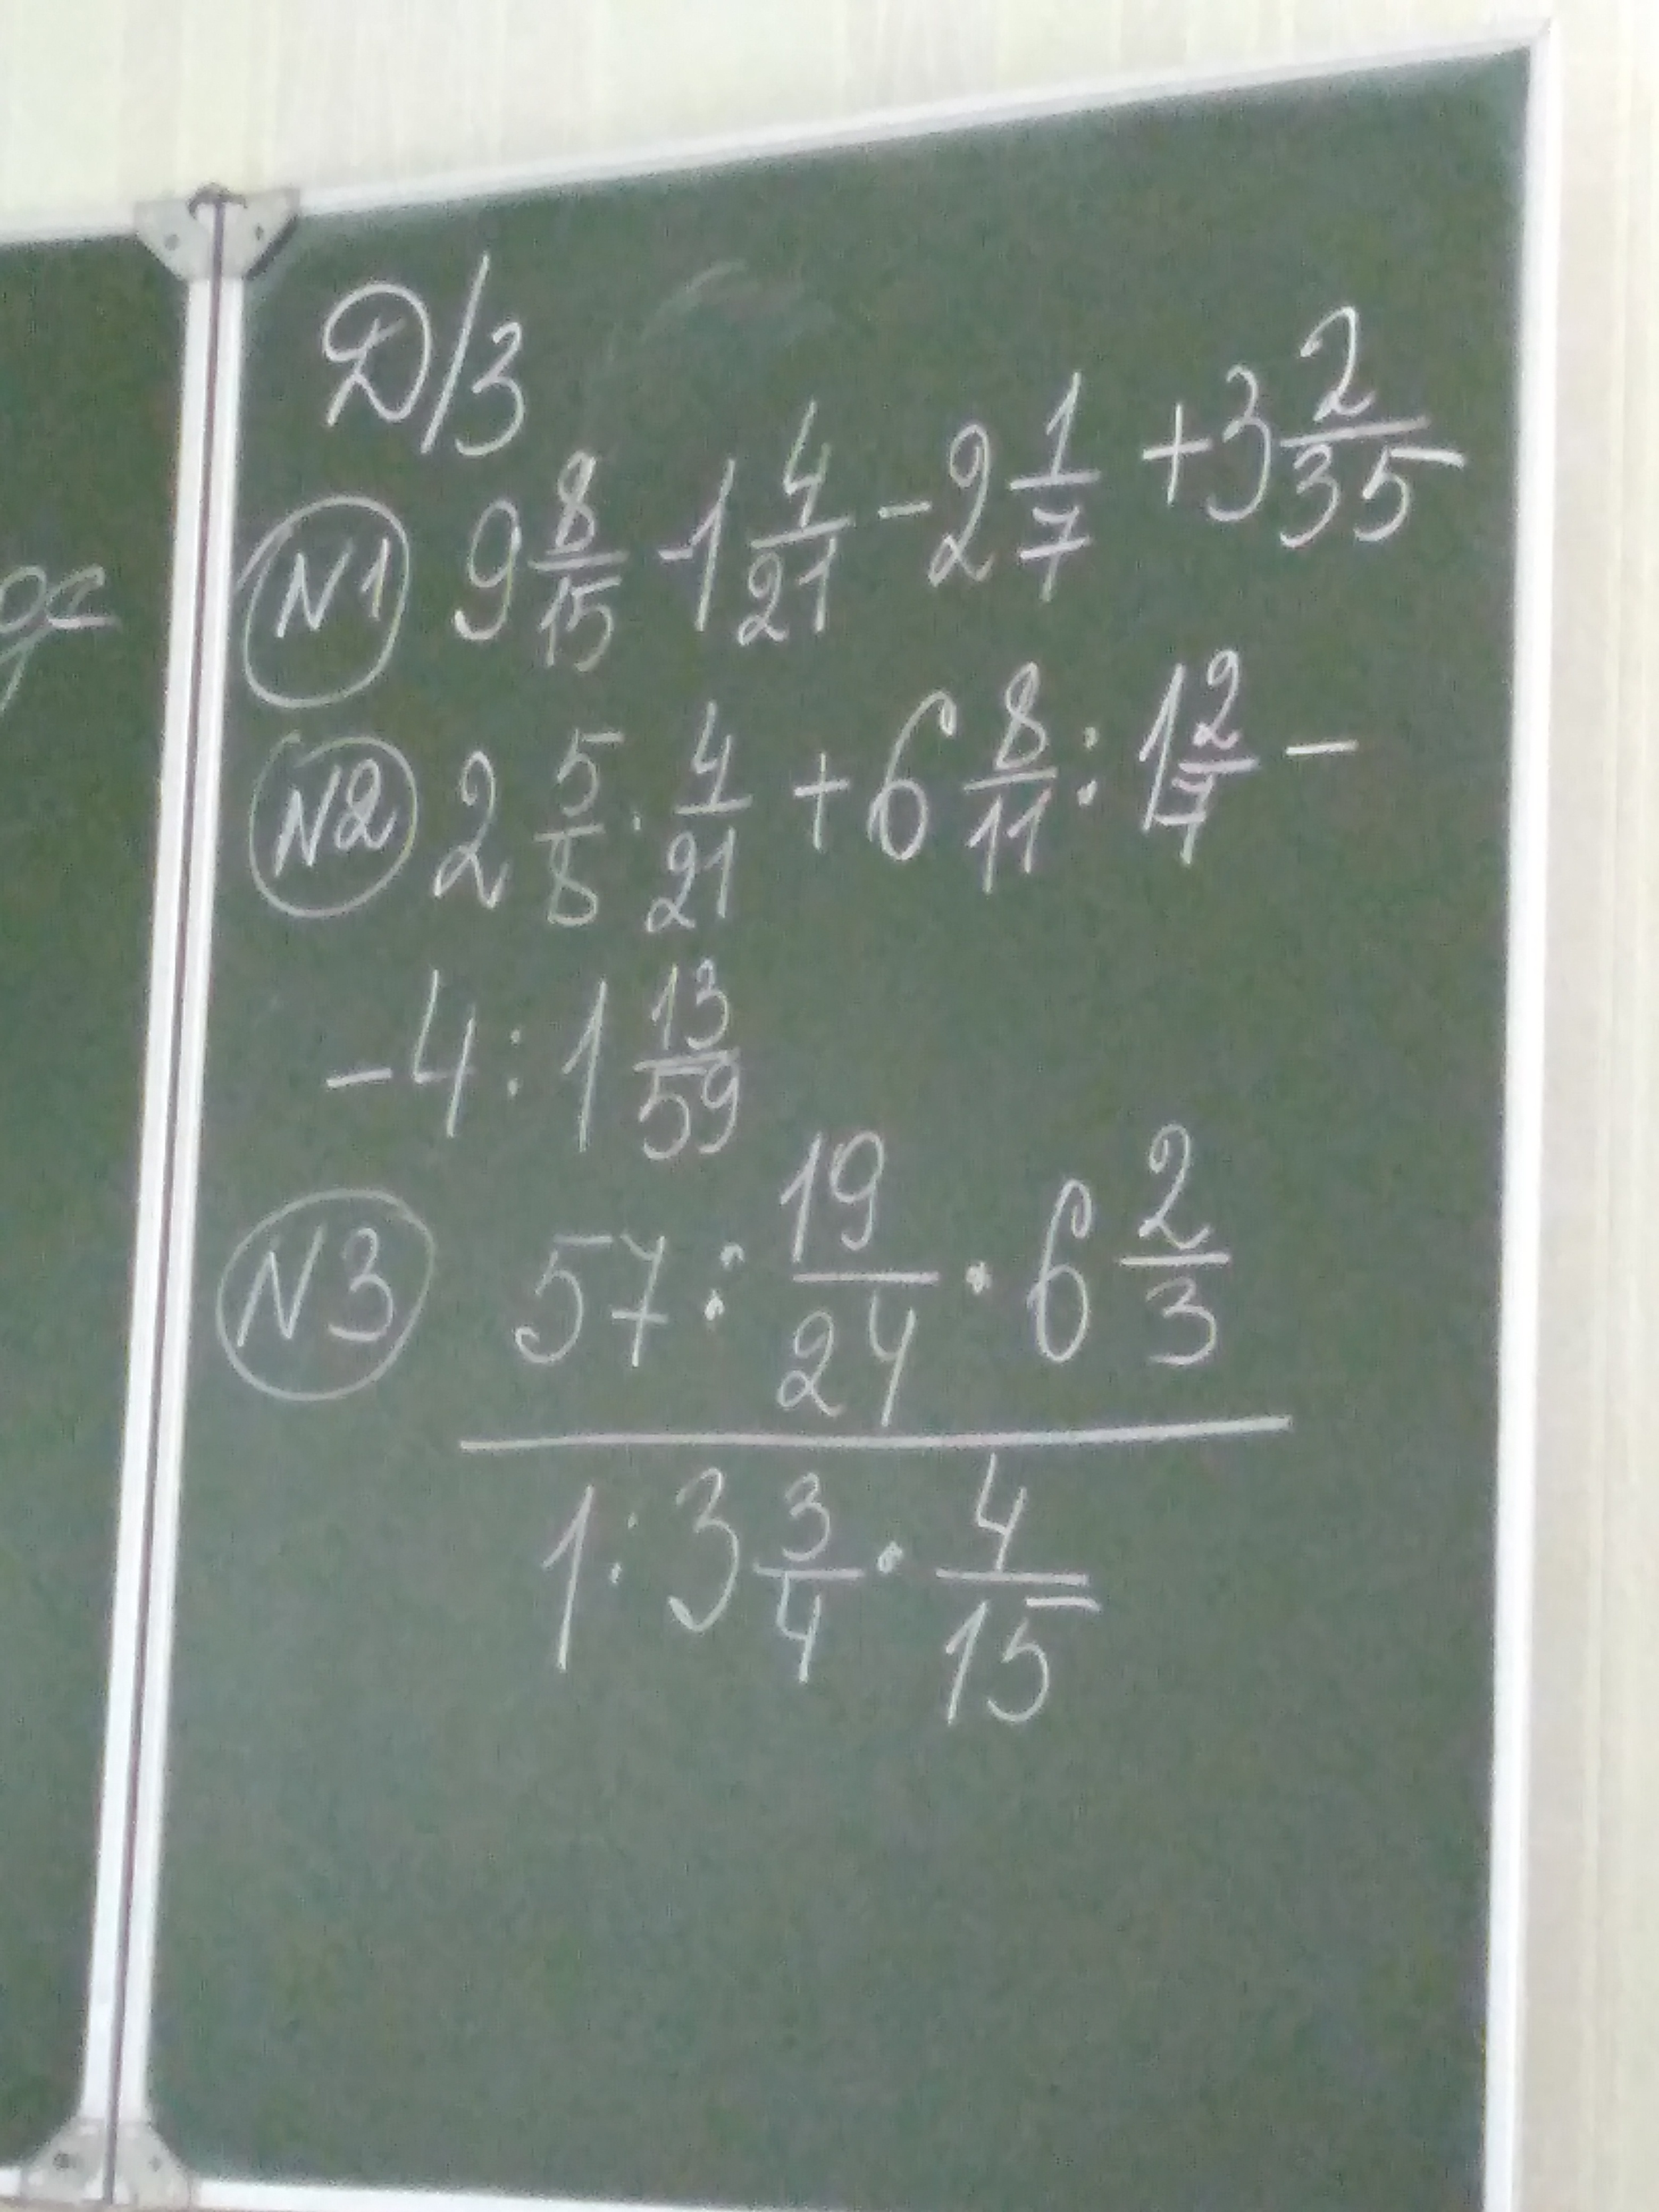 Д/З
N1 9 8/15 - 1 4/21 - 2 1/7 + 3 2/35
N2 2 5/8 · 4/21 + 6 8/11 : 1 2/7 -
- 4 : 1 13/59
N3 57 : 19/24 · 6 2/3
1 : 3 3/4 · 4/15